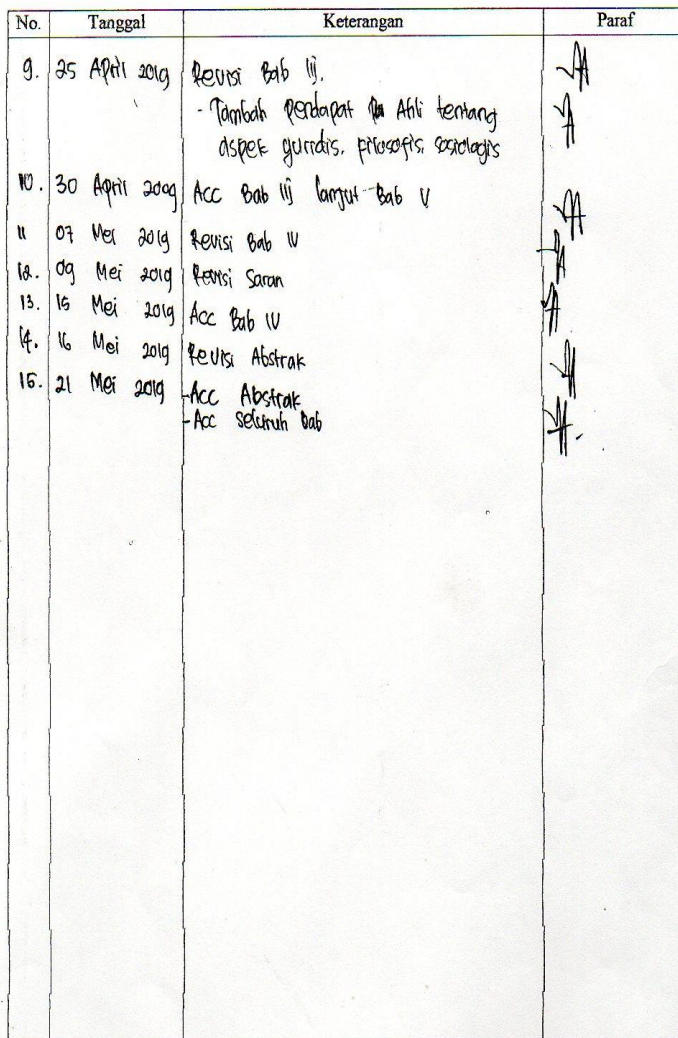 No. Tanggal Keterangan Paraf
9. 25 April 2019 Revisi Bab iij.
- Tambah pendapat Ahli tentang
aspek yuridis, filosofis, sosiologis
10. 30 April 2009 Acc Bab iij lanjut Bab V
11 07 Mei 2019 Revisi Bab IV
12. 09 Mei 2019 Revisi Saran
13. 15 Mei 2019 Acc Bab IV
14. 16 Mei 2019 Revisi Abstrak
15. 21 Mei 2019 -Acc Abstrak
-Acc seluruh Bab